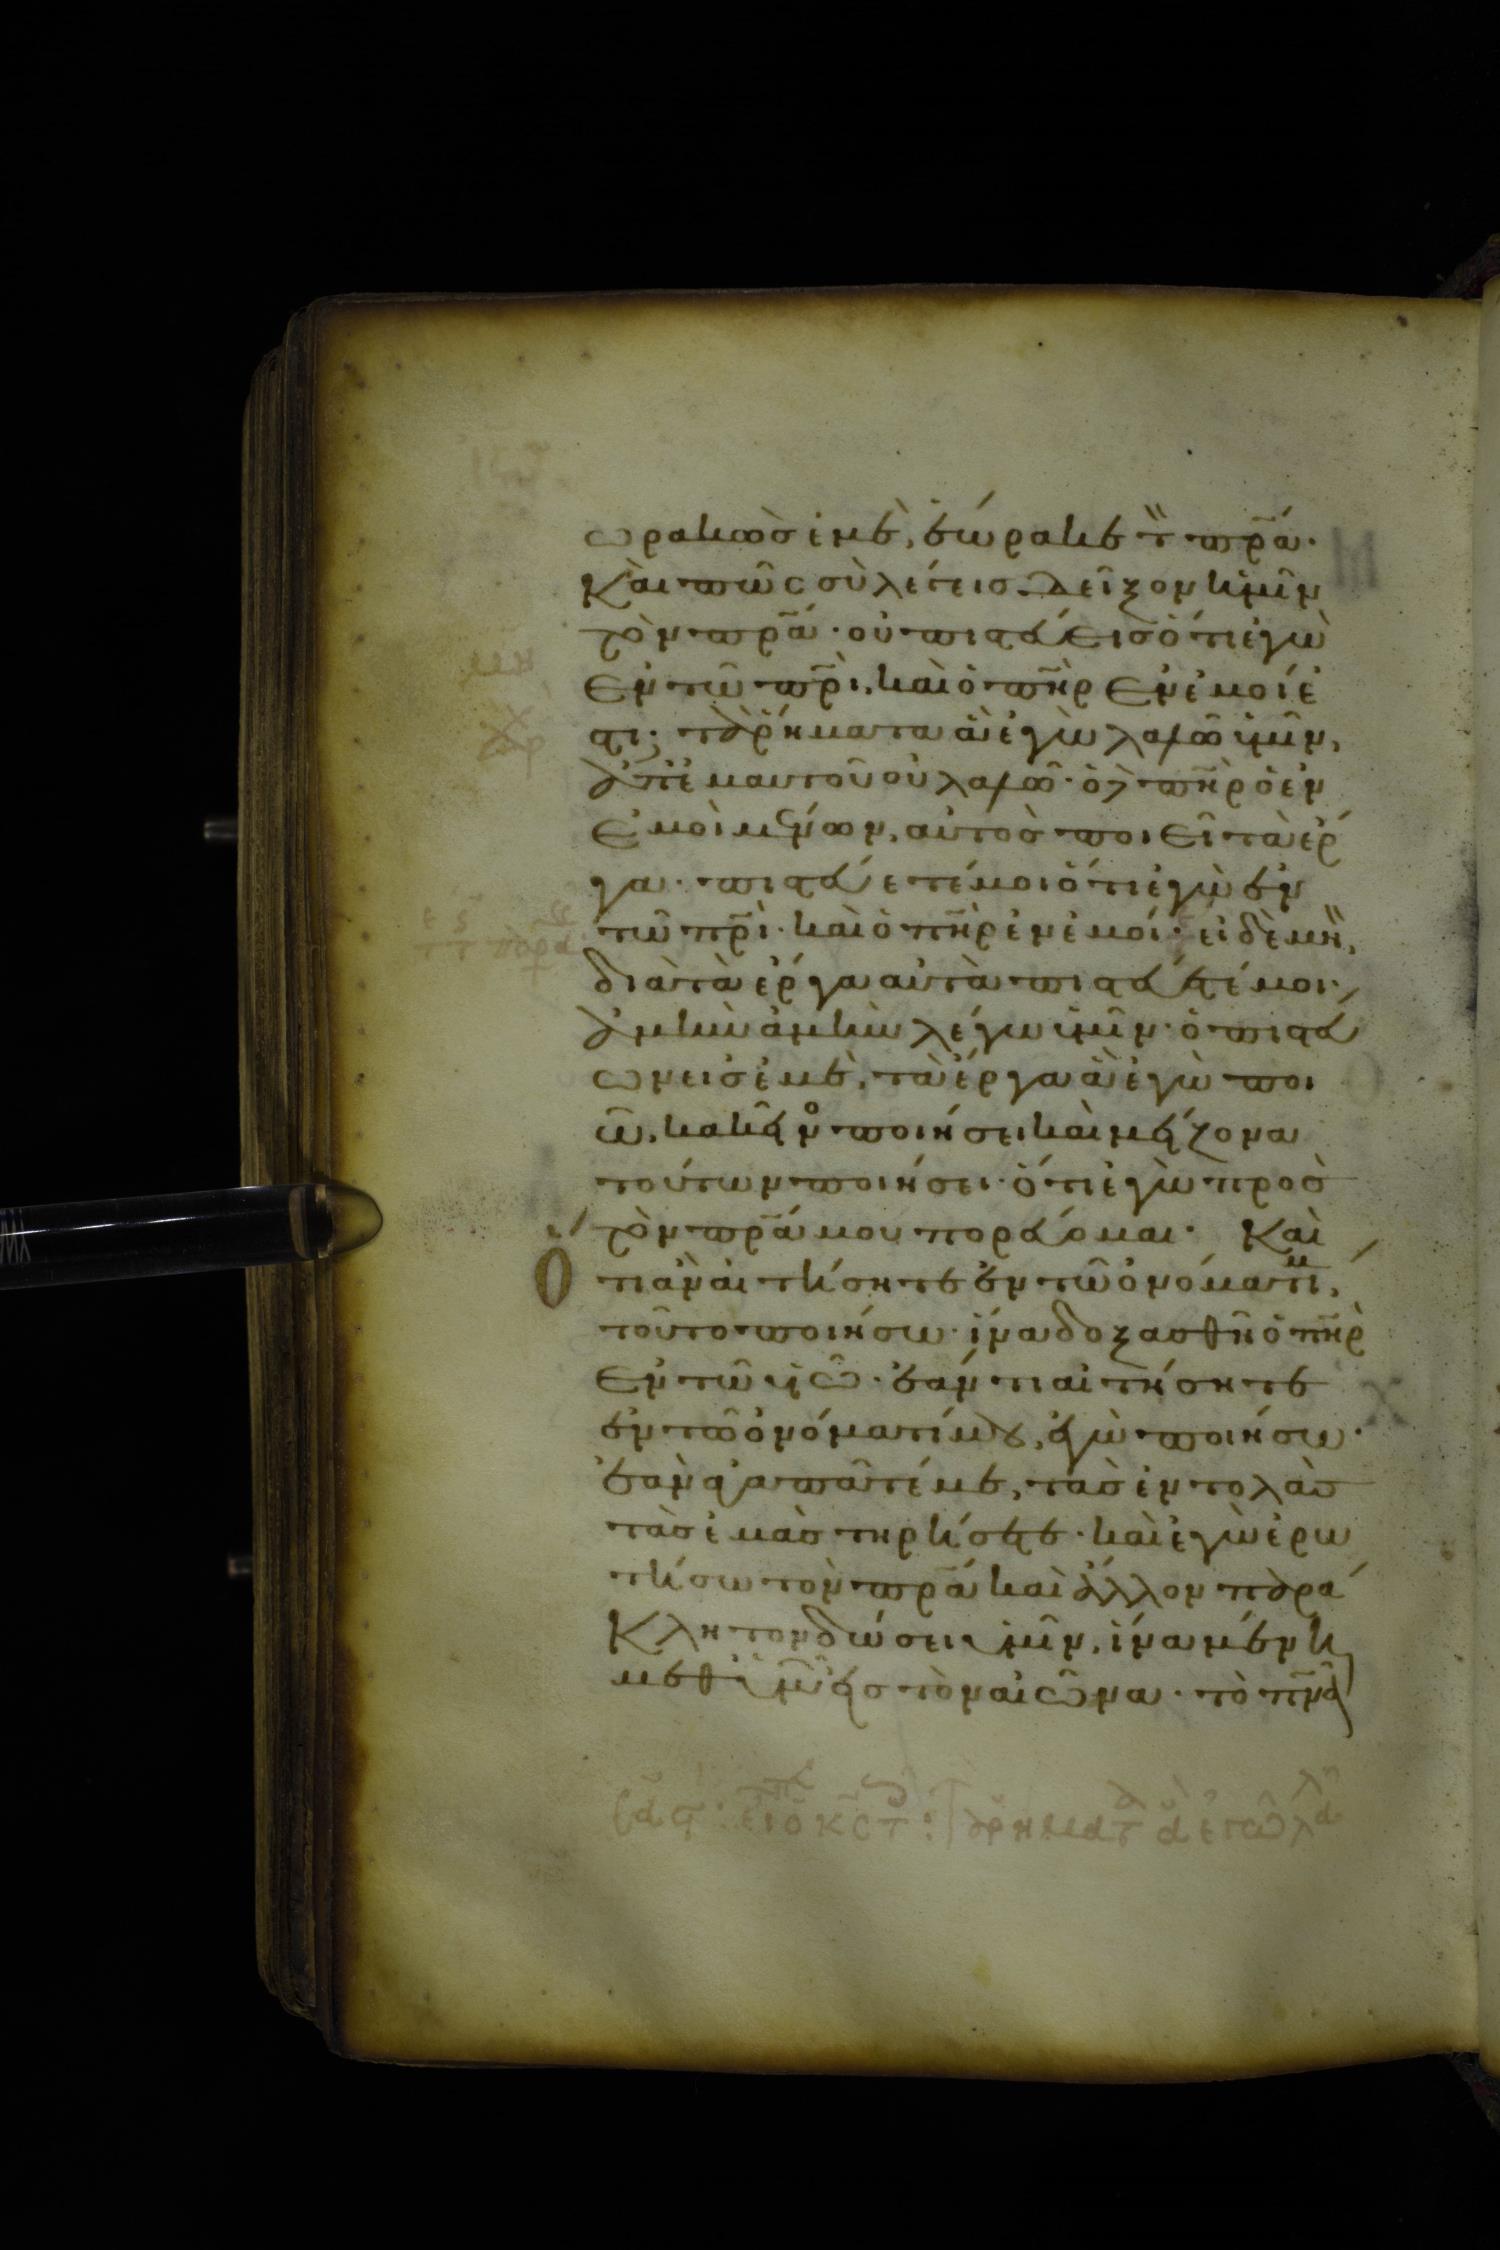 ωρακὼσ ἐμὲ, ἑώρακε τ̏ πρ̅ά·
Καὶ πῶς σὺ λέγεισ. Δεῖξον ἡμῖν
τὸν πρ̅ά· οὐ πιστεύεισ ὅτι ἐγὼ
ἐν τῶ πρ̅ὶ, καὶ ὁ πη̅ρ ἐν ἐμοί ἐ
στι; τὰ ῥήματα ἃ ἐγὼ λαλῶ ὑμῖν,
ἀπ' ἐμαυτοῦ οὐ λαλῶ· ὁ δὲ πη̅ρ ὁ ἐν
ἐμοὶ μένων, αὐτὸσ ποιεῖ τὰ ἔρ
γα· πιστεύετέ μοι ὅτι ἐγὼ ἐν
τῶ πρ̅ὶ· καὶ ὁ πη̅ρ ἐν ἐμοί· εἰ δὲ μὴ,
διὰ τὰ ἔργα αὐτὰ πιστεύετέ μοι·
ἀμὴν ἀμὴν λέγω ὑμῖν· ὁ πιστεύ
ων εἰσ ἐμὲ, τὰ ἔργα ἃ ἐγὼ ποι
ῶ, κακεῖνο ποιήσει καὶ μείζονα
τούτων ποιήσει· ὅτι ἐγὼ πρὸσ
τὸν πρ̅ά μου πορεύομαι· Καὶ
Ὅ τι ἂν αἰτήσητε ἐν τῶ ὀνόματί μ,
τοῦτο ποιήσω· ἵνα δοξασθῆ ὁ πη̅ρ
ἐν τῶ υἱῶ· ἐάν τι αἰτήσητε
ἐν τῶ ὀνόματί μου, ἐγὼ ποιήσω·
ἐὰν ἀγαπᾶτέ με, τὰσ ἐντολὰσ
τὰσ ἐμὰσ τηρήσετε· καὶ ἐγὼ ἐρω
τήσω τὸν πρ̅ά καὶ ἄλλον παρά
Κλητον δώσει ὑμῖν, ἵνα μένη
μεθ' ὑμῶν εἰσ τὸν αἰῶνα· τὸ πν̅α